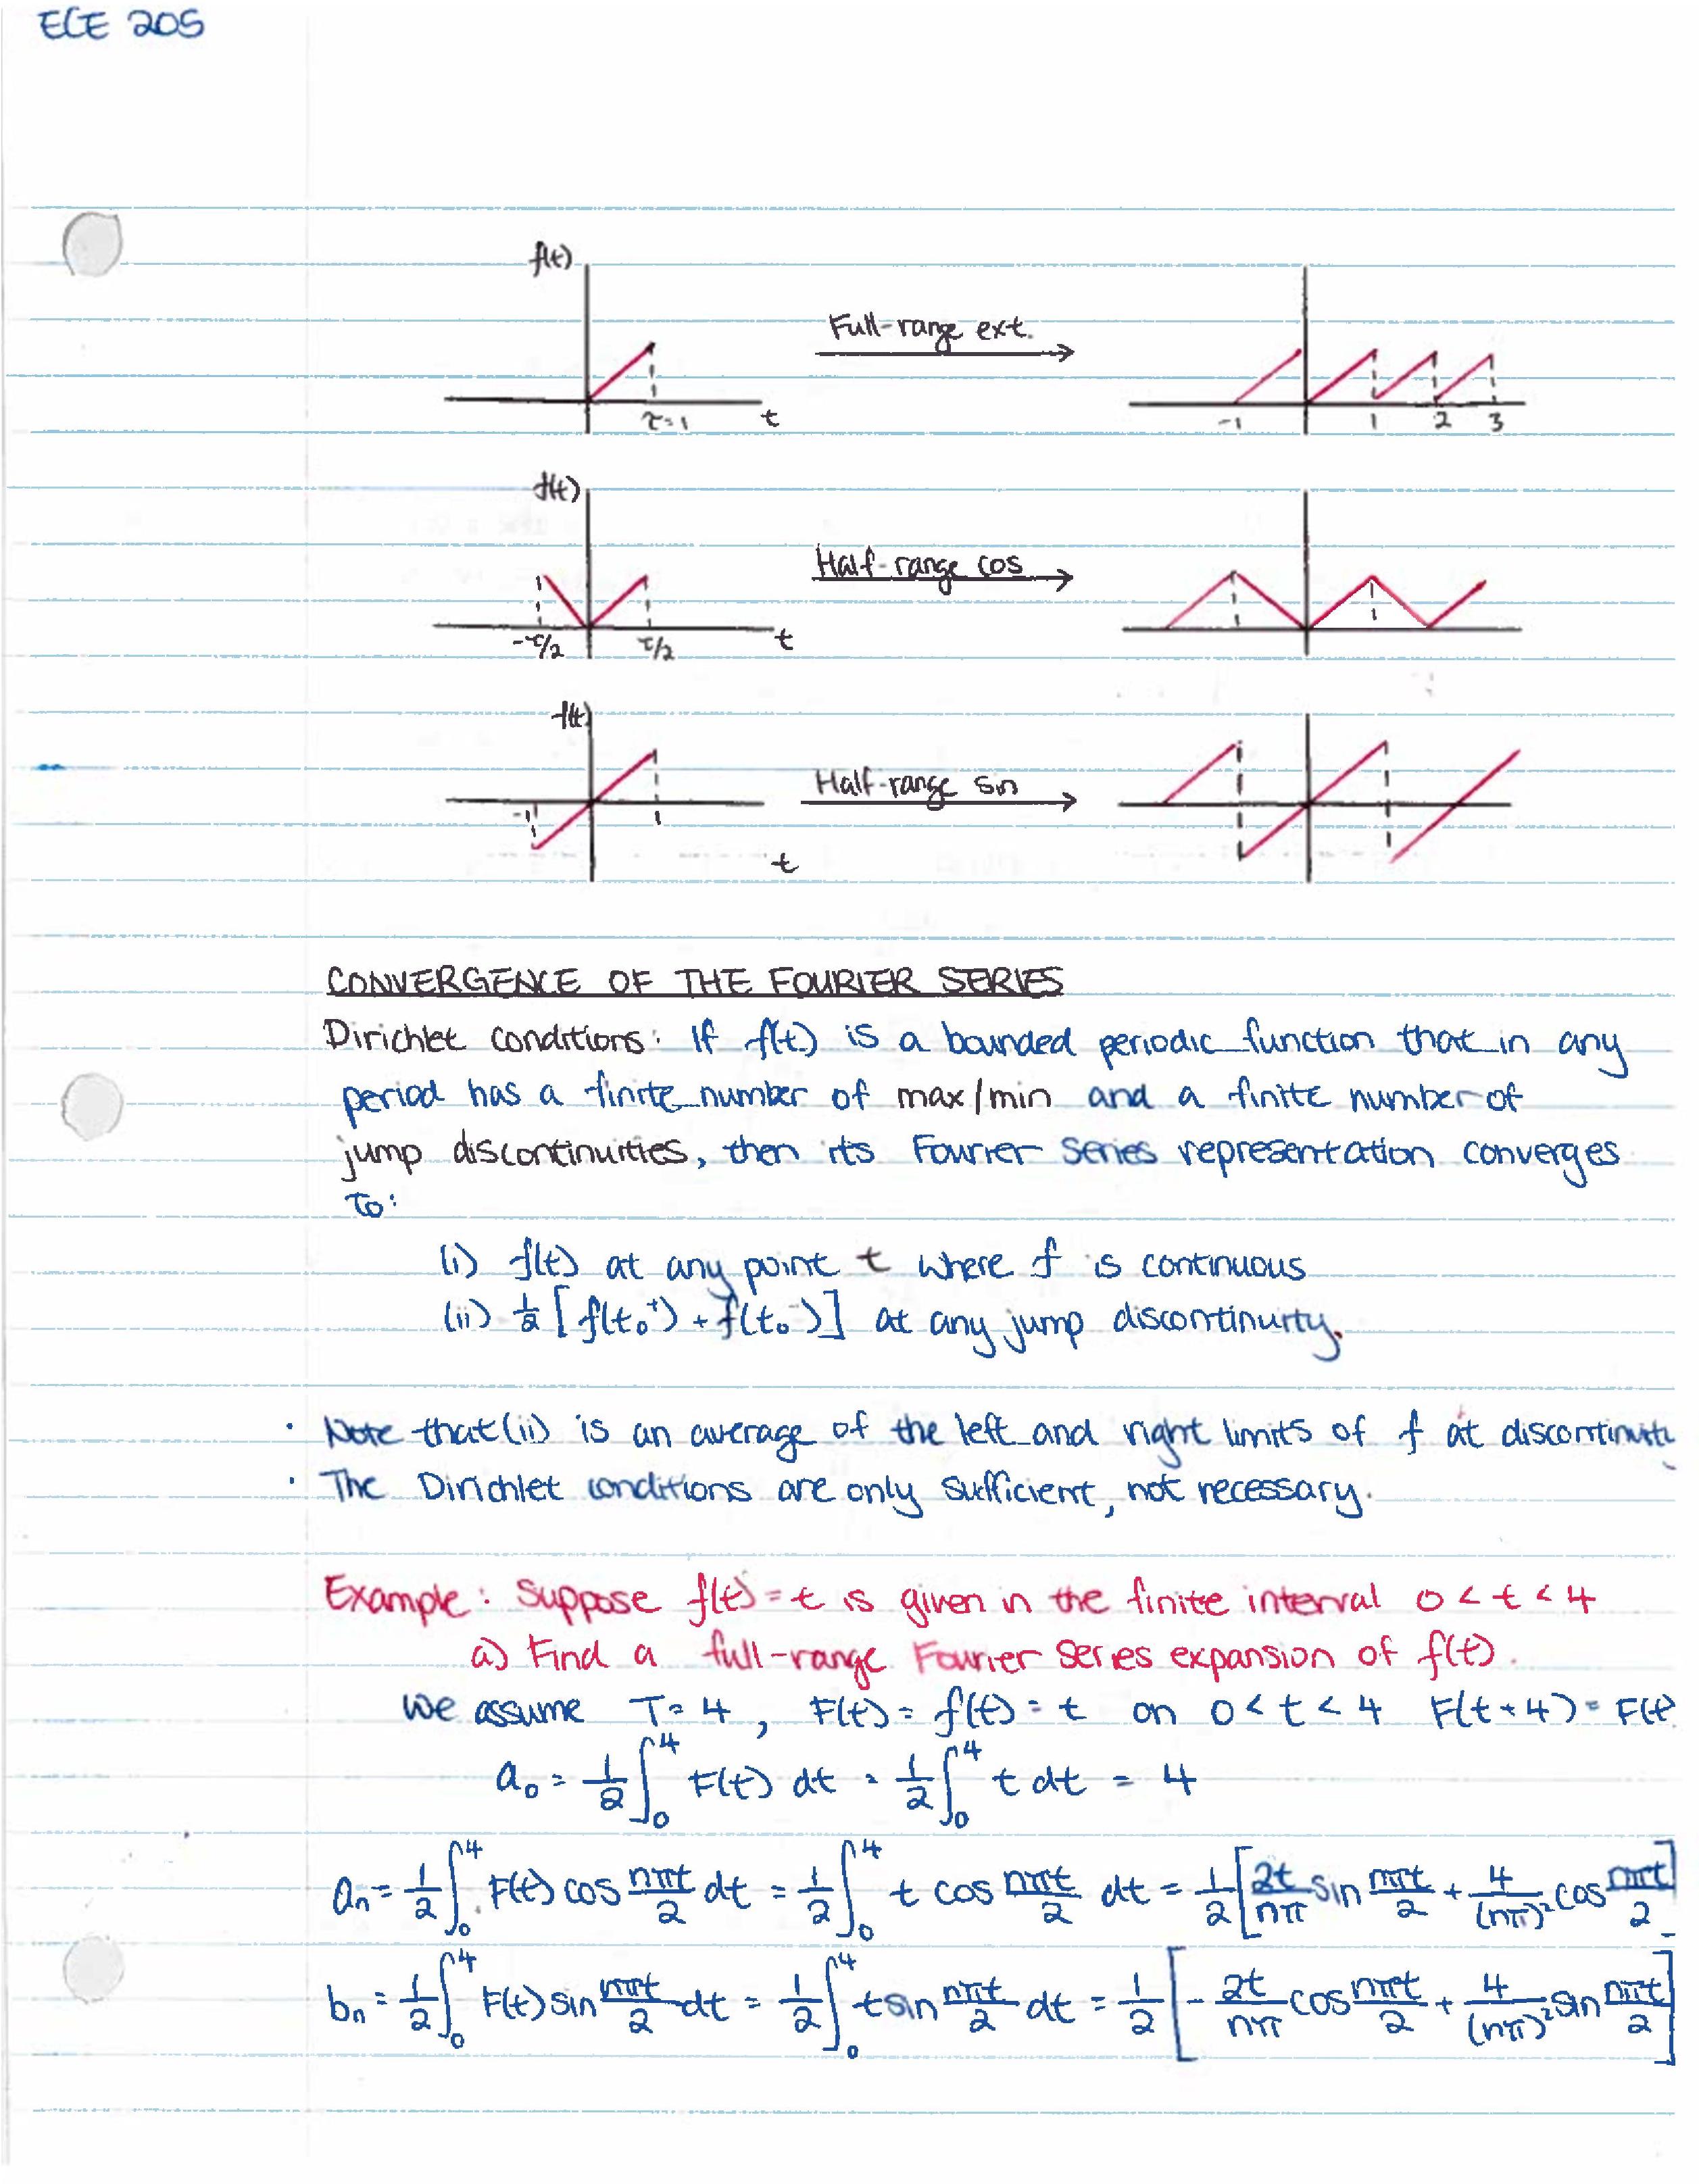 ECE 205
f(t)
Full-range ext.
τ=1 t
-1 1 2 3
f(t)
Half-range cos
-τ/2 τ/2 t
f(t)
Half-range sin
-1 1
t
CONVERGENCE OF THE FOURIER SERIES
Dirichlet conditions: If f(t) is a bounded periodic function that in any
period has a finite number of max/min and a finite number of
jump discontinuities, then its Fourier Series representation converges
to:
(i) f(t) at any point t where f is continuous
(ii) 1/2 [f(t₀⁺) + f(t₀⁻)] at any jump discontinuity.
· Note that (ii) is an average of the left and right limits of f at discontinuiti
· The Dirichlet conditions are only sufficient, not necessary.
Example: Suppose f(t) = t is given in the finite interval 0 < t < 4
a) Find a full-range Fourier Series expansion of f(t).
We assume T = 4, F(t) = f(t) = t on 0 < t < 4 F(t+4) = F(t
a₀ = 1/2 ∫₀⁴ F(t) dt = 1/2 ∫₀⁴ t dt = 4
aₙ = 1/2 ∫₀⁴ F(t) cos nπt/2 dt = 1/2 ∫₀⁴ t cos nπt/2 dt = 1/2 [2t/nπ sin nπt/2 + 4/(nπ)² cos nπt/2]
bₙ = 1/2 ∫₀⁴ F(t) sin nπt/2 dt = 1/2 ∫₀⁴ t sin nπt/2 dt = 1/2 [- 2t/nπ cos nπt/2 + 4/(nπ)² sin nπt/2]